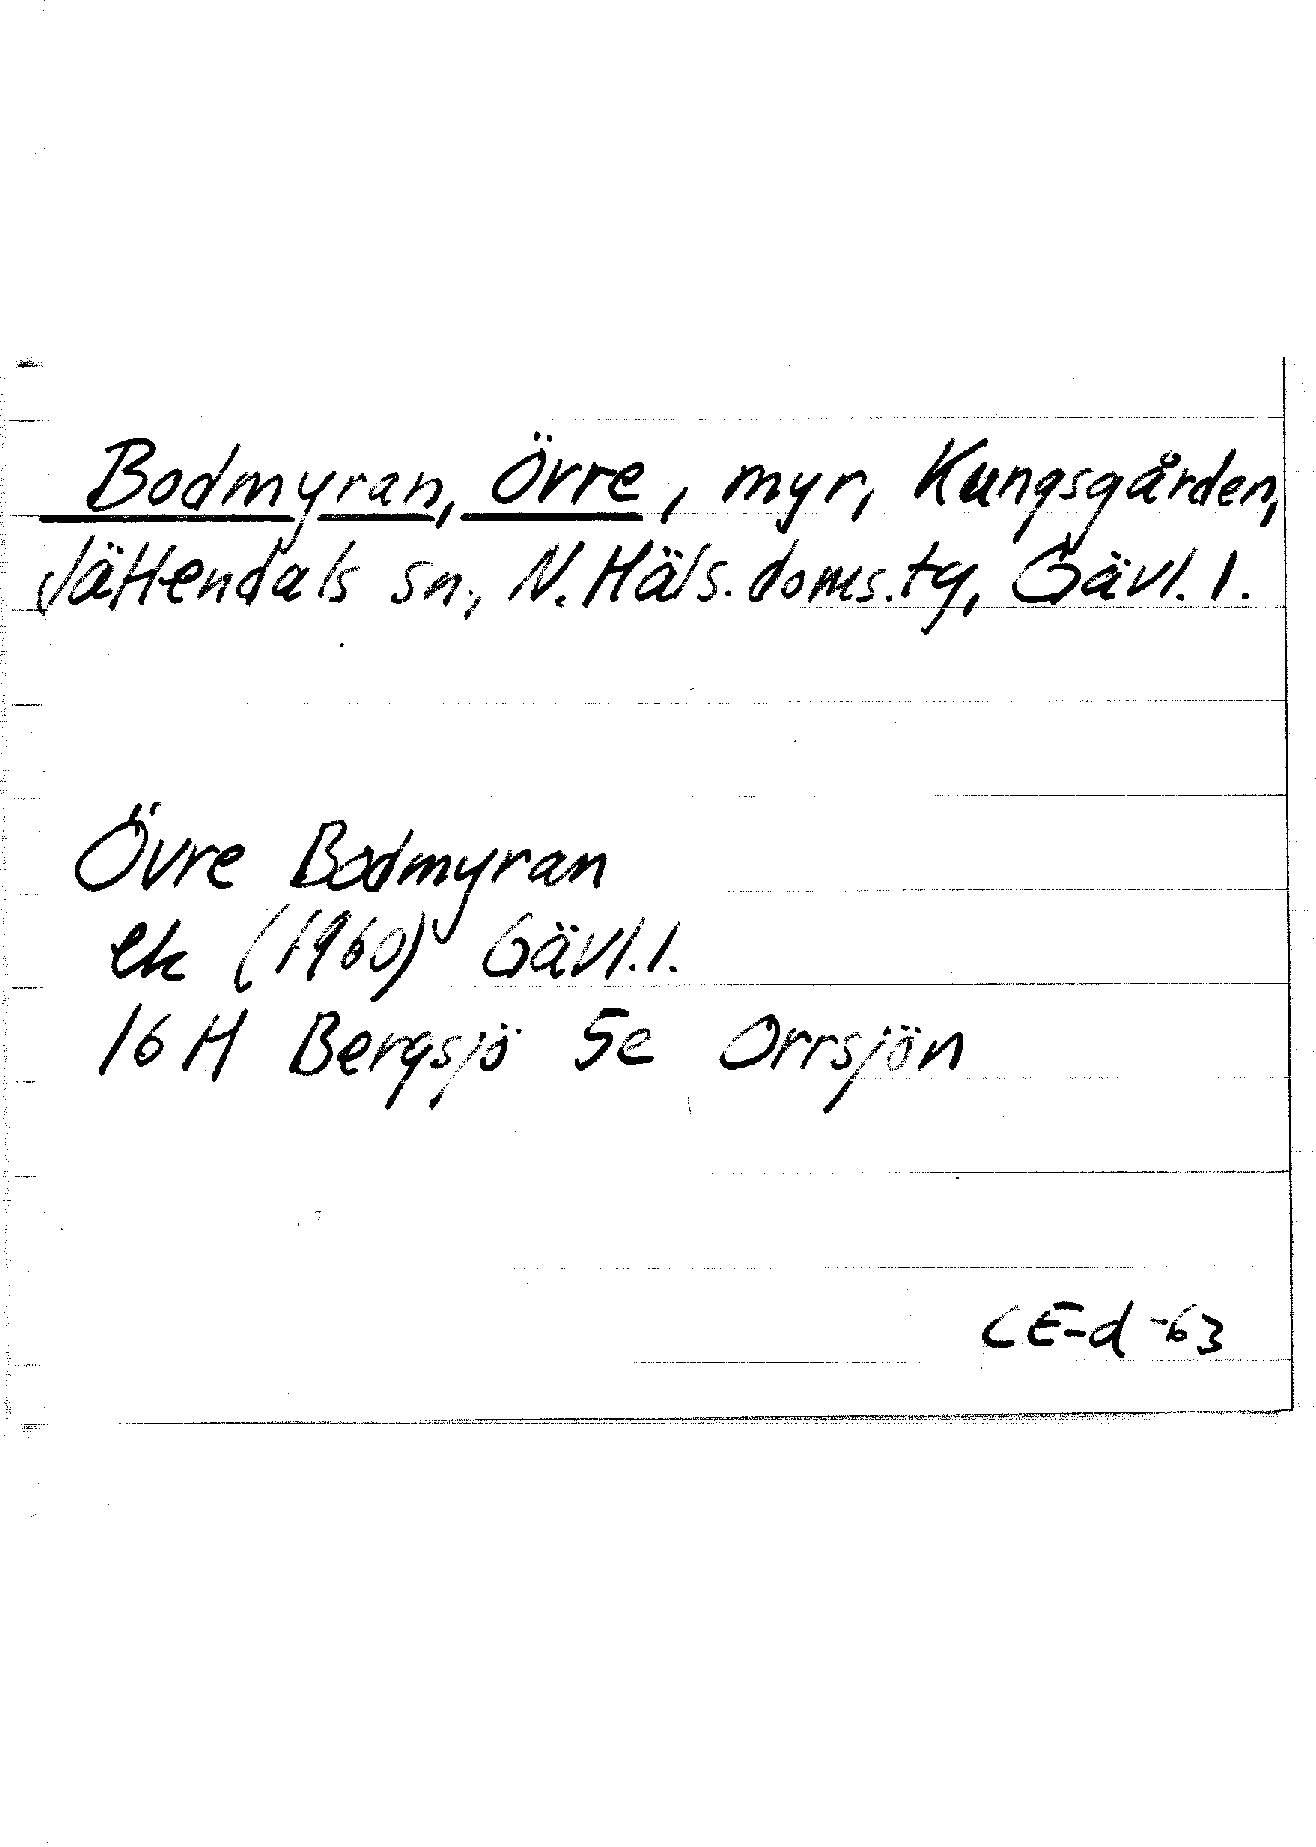 Bodmyran, Övre, myr, Kungsgården,
Jättendals sn, N. Häls. doms. tg, Gävl. l.
Övre Bodmyran
ek (1960) Gävl. l.
16 H Bergsjö 5e Orrsjön
CE-d -63